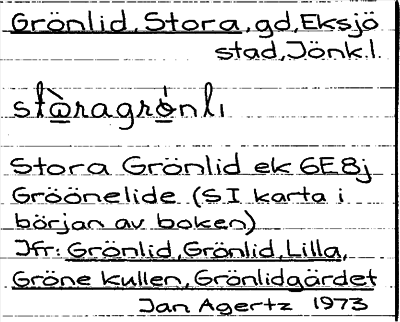 Grönlid, Stora, gd, Eksjö
stad, Jönk.l.
stòragrónlı
Stora Grönlid ek 6E8j
Gröönelide (S.I karta i
början av boken)
Jfr: Grönlid, Grönlid, Lilla,
Gröne kullen, Grönlidgärdet
Jan Agertz 1973